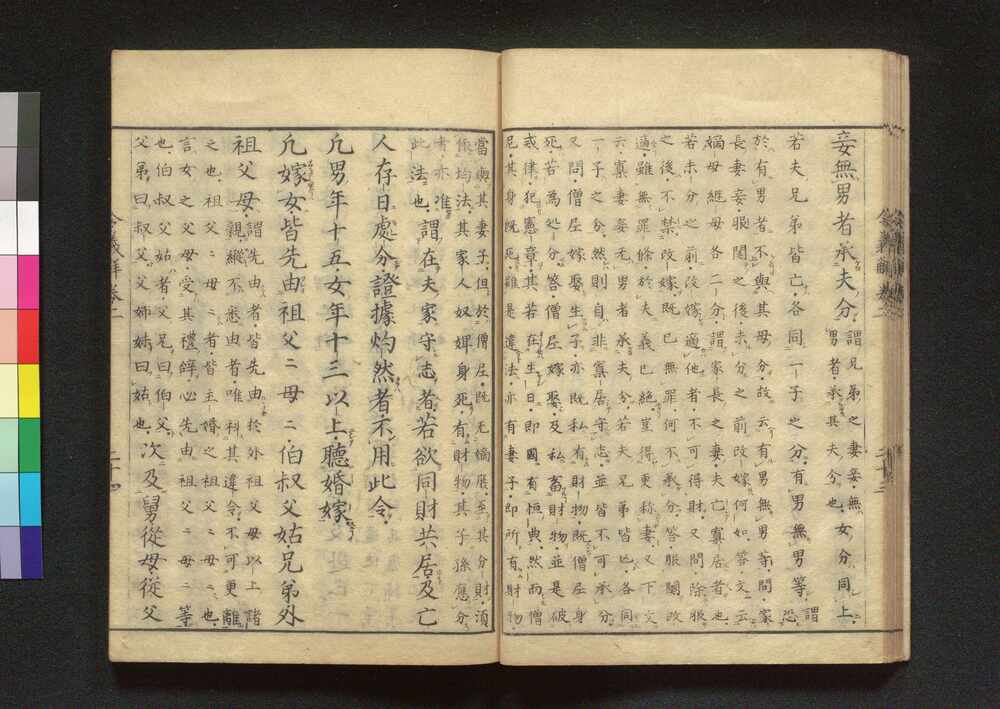 妾無男者承夫分謂兄弟之妻妾無
男者承其夫分也女分同上
若夫兄弟皆亡各同一子之分有男無男等謂
恐
於有男者不與其母分故云有男無男等問家
長妻妾服闋之後未分之前改嫁何如答文云
嫡母継母各二分謂家長之妻夫亡寡居者也
若未分之前改嫁適他者不可得財又問除服
之後不禁改嫁既已無罪何不承分答服闋改
適雖無罪條於夫義已絶豈得更称妻又下文
云寡妻妾無男者承夫分若夫兄弟皆亡各同
一子之分然則自非寡居守志並皆不可承分
又問僧尼嫁娶生子亦既私有財物既僧尼身
死若為処分答僧尼嫁娶及私畜財物並是破
或律犯憲章其若在生日即國有恒典然而僧
尼其身既死雖是違法亦有妻子即所有財物
當與其妻子但於僧尼既无嫡庶至其分財須
依均法其家人奴婢身死有財物其子孫應分
者亦准
此法也謂在夫家守志者若欲同財共居及亡
人存日處分證據灼然者不用此令
凡男年十五女年十三以上聽婚嫁
凡嫁女皆先由祖父ニ母ニ伯叔父姑兄弟外
祖父母謂先由者皆先由於外祖父母以上諸
親縱不悉由者唯科其違令不可更離
之也祖父ニ母ニ者皆主婚之祖父ニ母ニ也
言女之父母受其禮辭心先由祖父ニ母ニ等
也伯叔父姑者父兄曰伯父
父弟曰叔父父姉妹曰姑也次及舅從母從父
令義解巻二
二十四